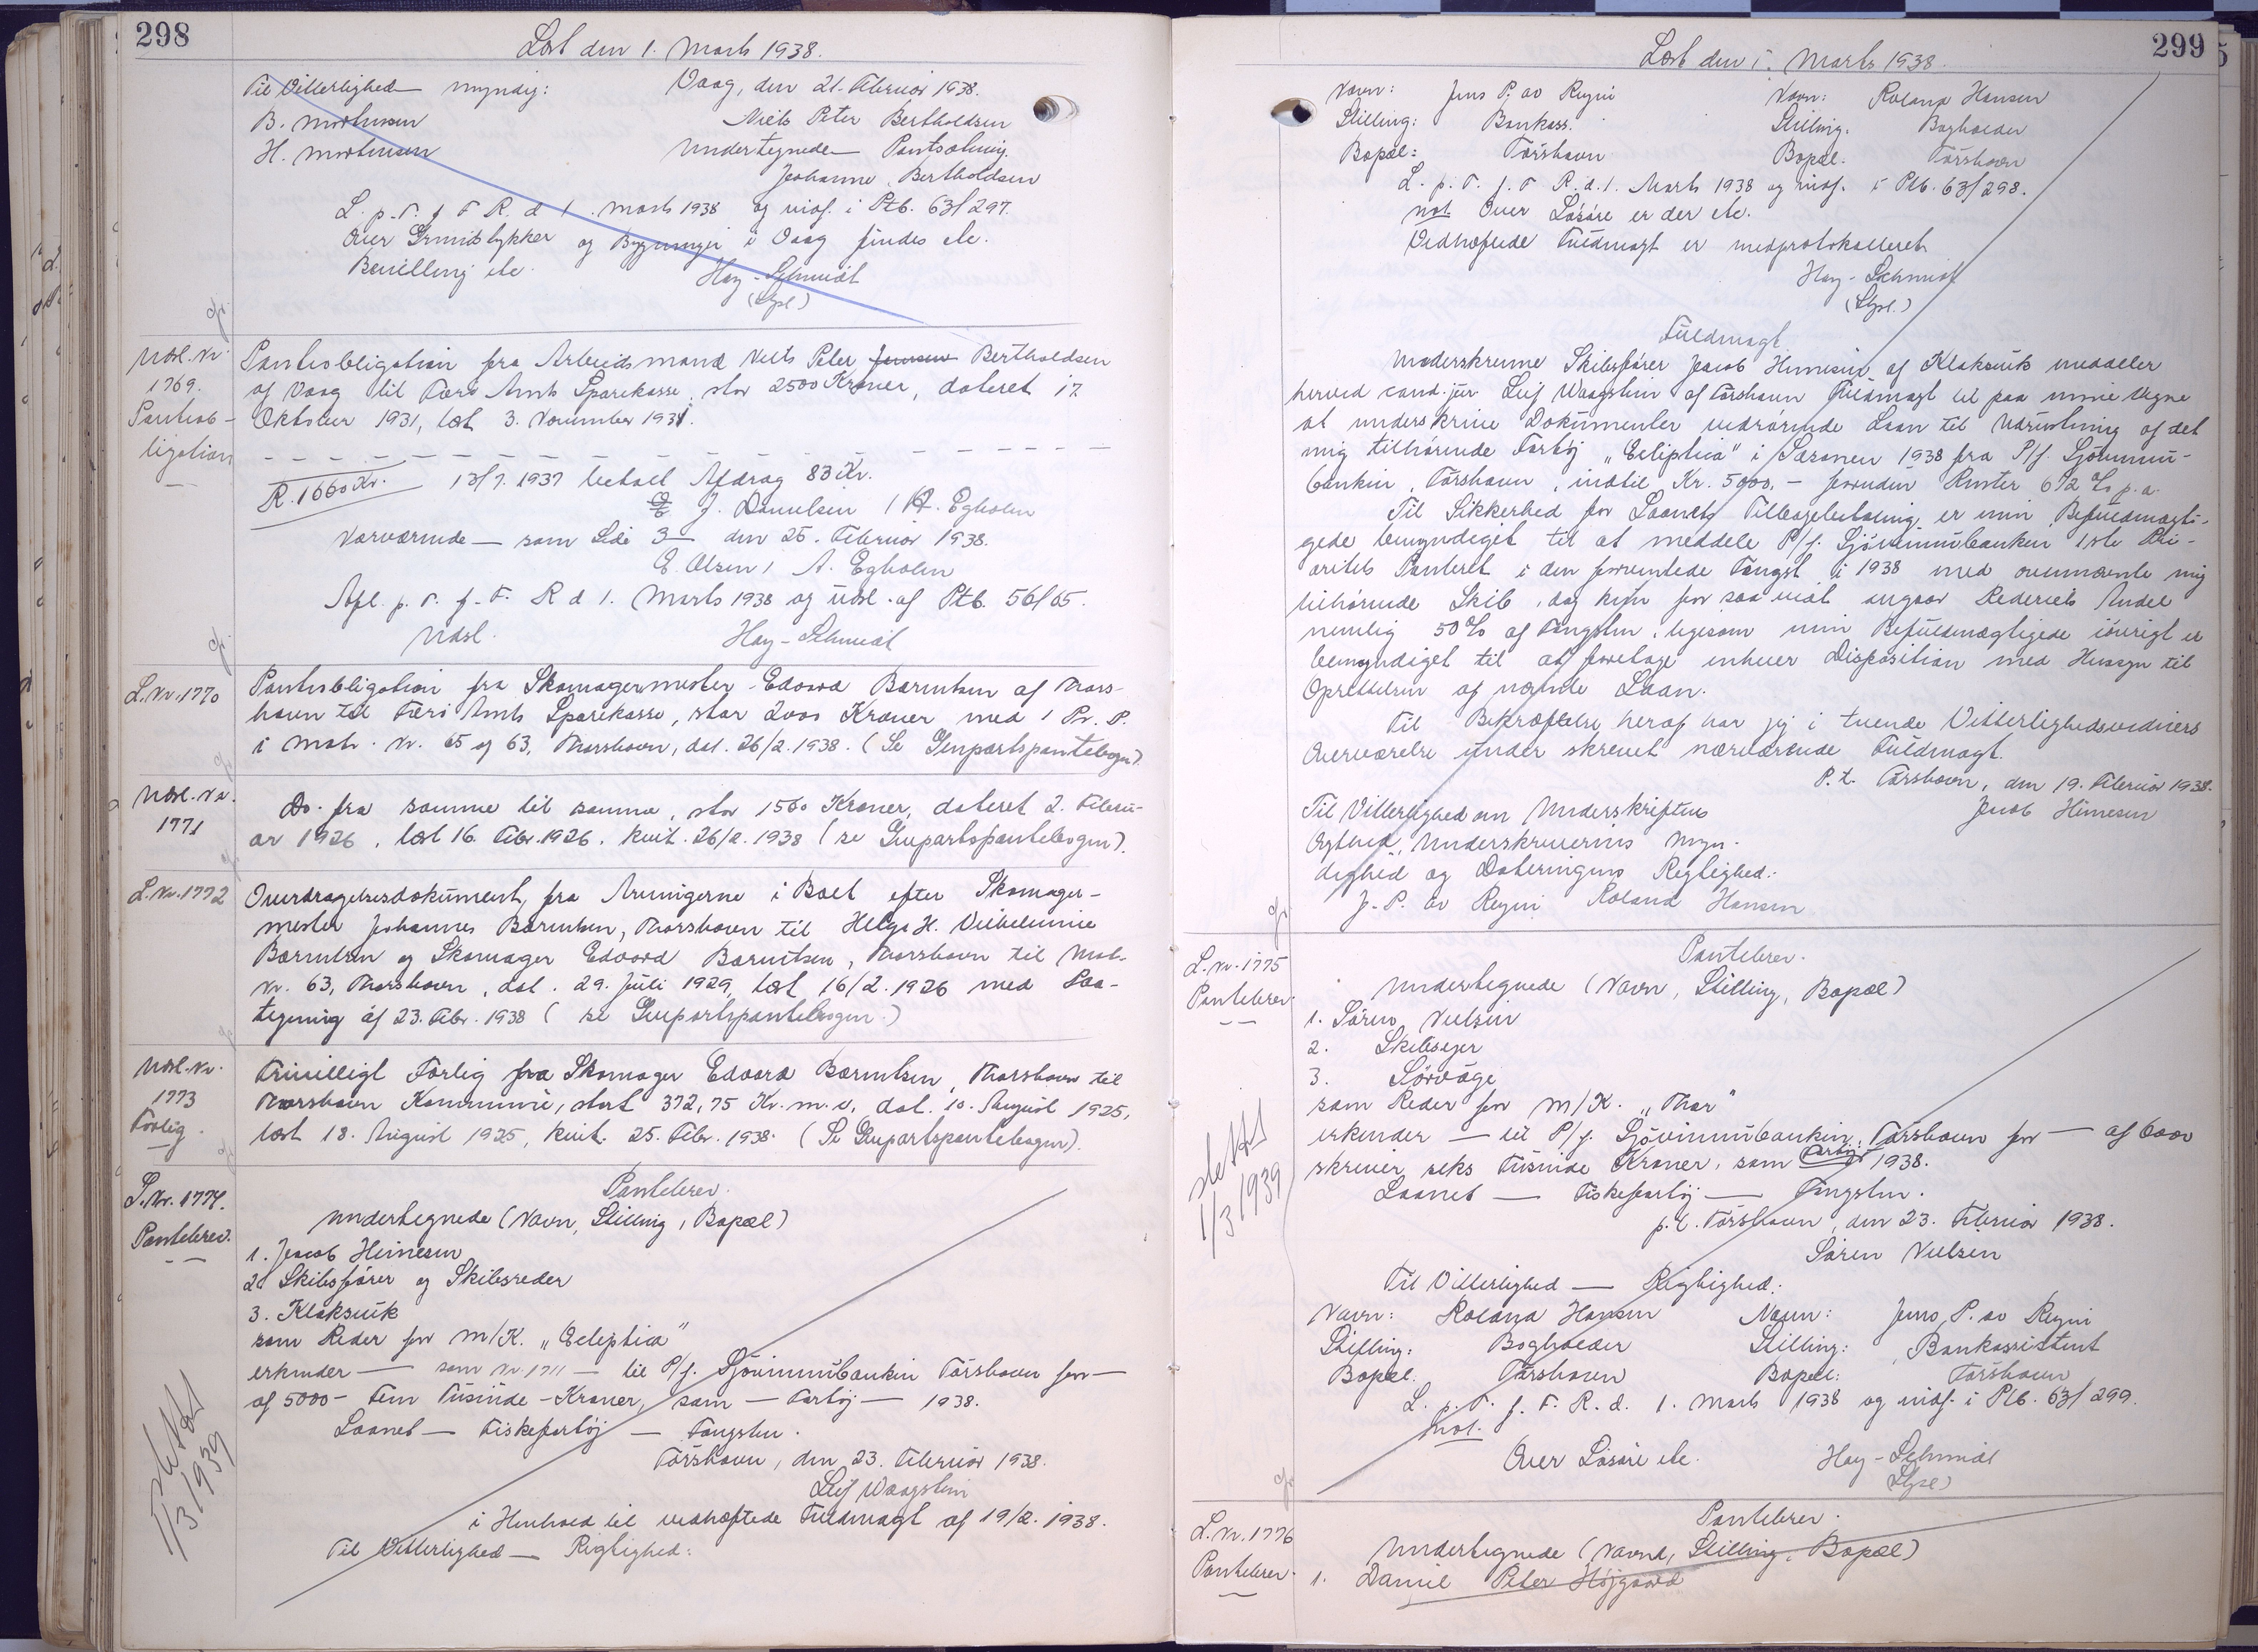 298
Læst den 1. Marts 1938.
Til Vitterlighed myndig: Vaag, den 21. Februar 1938.
B. Mortensen Niels Peter Bertholdsen
H. Mortensen Undertegnede — Pantsætning.
Johanne Bertholdsen
L. p. T. f. F. R. d. 1. Marts 1938 og indf. i Ptb. 63/297.
Over Grundstykker og Bygninger i Vaag findes etc.
Bevilling etc. Hay-Schmidt
(Gpl.)
Udsl. Nr. 1769. Pantobligation
Pantobligation fra Arbeidsmand Niels Peter Jensen Bertholdsen
af Vaag til Færø Amts Sparekasse, stor 2500 Kroner, dateret 17.
Oktober 1931, læst 3. November 1931.
R. 1660 Kr. 13/7. 1937 betalt Afdrag 83 Kr.
J. Danielsen / A. Egholm
Nærværende — som Side 3 — den 25. Februar 1938.
E. Olsen / A. Egholm
Aflj. p. T. f. F. R d 1. Marts 1938 og udsl. af Ptb. 56/65.
Udsl. Hay-Schmidt
L. Nr. 1770
Pantobligation fra Skomagermester Edvard Bærentsen af Thors-
havn til Færø Amts Sparekasse, stor 2000 Kroner med 1 Pr. P.
i Matr. Nr. 65 og 63, Thorshavn, dat. 26/2. 1938. (Se Genpartspantebogen).
Udsl. Nr. 1771
Do. fra samme til samme, stor 1500 Kroner, dateret 2. Febru-
ar 1926, læst 16. Febr. 1926. kvit. 26/2. 1938 (se Genpartspantebogen).
L. Nr. 1772
Overdragelsesdokument fra Arvingerne i Boet efter Skomager-
mester Johannes Bærentsen, Thorshavn til Helga H. Vilhelmine
Bærentsen og Skomager Edvard Bærentsen, Thorshavn til Matr.
Nr. 63, Thorshavn, dat. 29. Juli 1929, læst 16/2. 1926 med Paa-
tegning af 23. Febr. 1938 (se Genpartspantebogen.)
Udsl. Nr. 1773 Forlig.
Frivilligt Forlig fra Skomager Edvard Bærentsen, Thorshavn til
Thorshavn Kommune, stort 372,75 Kr. m. v. dat. 10. August 1925,
læst 18. August 1925, kvit. 25. Febr. 1938. (Se Genpartspantebogen).
L. Nr. 1774. Pantebrev.
Pantebrev.
Undertegnede (Navn, Stilling, Bopæl)
1. Jacob Heinesen
2. Skibsfører og Skibsreder
3. Klaksvik
som Reder for M/K. "Ecliptica"
erkender — som Nr. 1711 — til P/f. Sjóvinnubankin Tórshavn for —
af 5000 - Fem Tusinde - Kroner, som — Fartøj — 1938.
Laanet — Fiskefartøj — Fangsten.
Tórshavn, den 23. Februar 1938.
Leif Waagstein
i Henhold til vedhæftede Fuldmagt af 19/2. 1938.
Til Vitterlighed — Rigtighed:
slettet 1/3 1939
299
Læst den 1. Marts 1938.
Navn: Jens P. av Reyni Navn: Roland Hansen
Stilling: Bankass. Stilling. Bogholder
Bopæl: Tórshavn Bopæl. Tórshavn
L. p. T. f. F. R. d. 1. Marts 1938 og indf. i Ptb. 63/298.
not. Over Løsøre er der etc.
Vedhæftede Fuldmagt er medprotokolleret.
Hay-Schmidt
(Gpl.)
Fuldmagt.
Underskrevne Skibsfører Jacob Heinesen af Klaksvik meddeler
herved cand. jur. Leif Waagstein af Tórshavn Fuldmagt til paa mine Vegne
at underskrive Dokumenter vedrørende Laan til Udrustning af det
mig tilhørende Fartøj "Ecliptica" i Sæsonen 1938 fra P/f. Sjóvinnu-
bankin, Tórshavn, indtil Kr. 5000.- foruden Renter 6 1/2 % p. a.
Til Sikkerhed for Laanets Tilbagebetaling er min Befuldmægti-
gede bemyndiget til at meddele P/f. Sjóvinnubankin 1ste Pri-
oritets Panteret i den forventede Fangst i 1938 med ovennævnte mig
tilhørende Skib, dog kun for saa vidt angaar Rederiets Andel
nemlig 50% af Fangsten, ligesom min Befuldmægtigede iøvrigt er
bemyndiget til at foretage enhver Disposition med Hensyn til
Oprettelsen af nævnte Laan.
Til Bekræftelse heraf har jeg i tvende Vitterlighedsvidners
Overværelse underskrevet nærværende Fuldmagt.
P. t. Tórshavn, den 19. Februar 1938.
Til Vitterlighed om Underskriftens Jacob Heinesen
Ægthed, Underskriverens Myn-
dighed og Dateringens Rigtighed:
J. P. av Reyni Roland Hansen
L. Nr. 1775 Pantebrev.
Pantebrev.
Undertegnede (Navn, Stilling, Bopæl)
1. Søren Nielsen
2. Skibsejer
3. Sørvåge
som Reder for M/K. "Thor"
erkender — til P/f. Sjóvinnubankin, Tórshavn for — af 6000
skriver seks Tusinde Kroner, som Fartøj 1938.
Laanet — Fiskefartøj — Fangsten.
p. t. Tórshavn, den 23. Februar 1938.
Søren Nielsen
Til Vitterlighed — Rigtighed:
Navn: Roland Hansen Navn: Jens P. av Reyni
Stilling: Bogholder Stilling: Bankassistent
Bopæl. Tórshavn Bopæl: Tórshavn
L. p. T. f. F. R. d. 1. Marts 1938 og indf. i Ptb. 63/299.
not.
Over Løsøre etc. Hay-Schmidt
(Gpl.)
slettet 1/3 1939
L. Nr. 1776 Pantebrev.
Pantebrev.
Undertegnede (Navn, Stilling, Bopæl)
1. Daniel Peter Højgaard